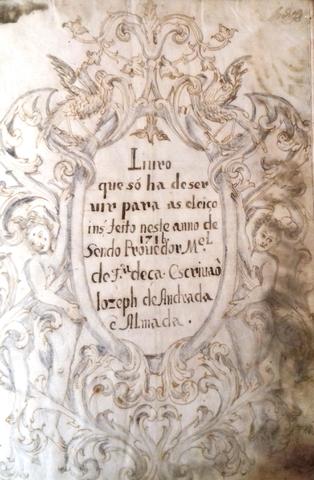 Liuro
que só ha de ser
uir para as eleiço
ins feito neste anno de
1716
Sendo Prouedor M.el
de F.ra deca. Escriuaò
Iozeph de Andrada
e Almada.